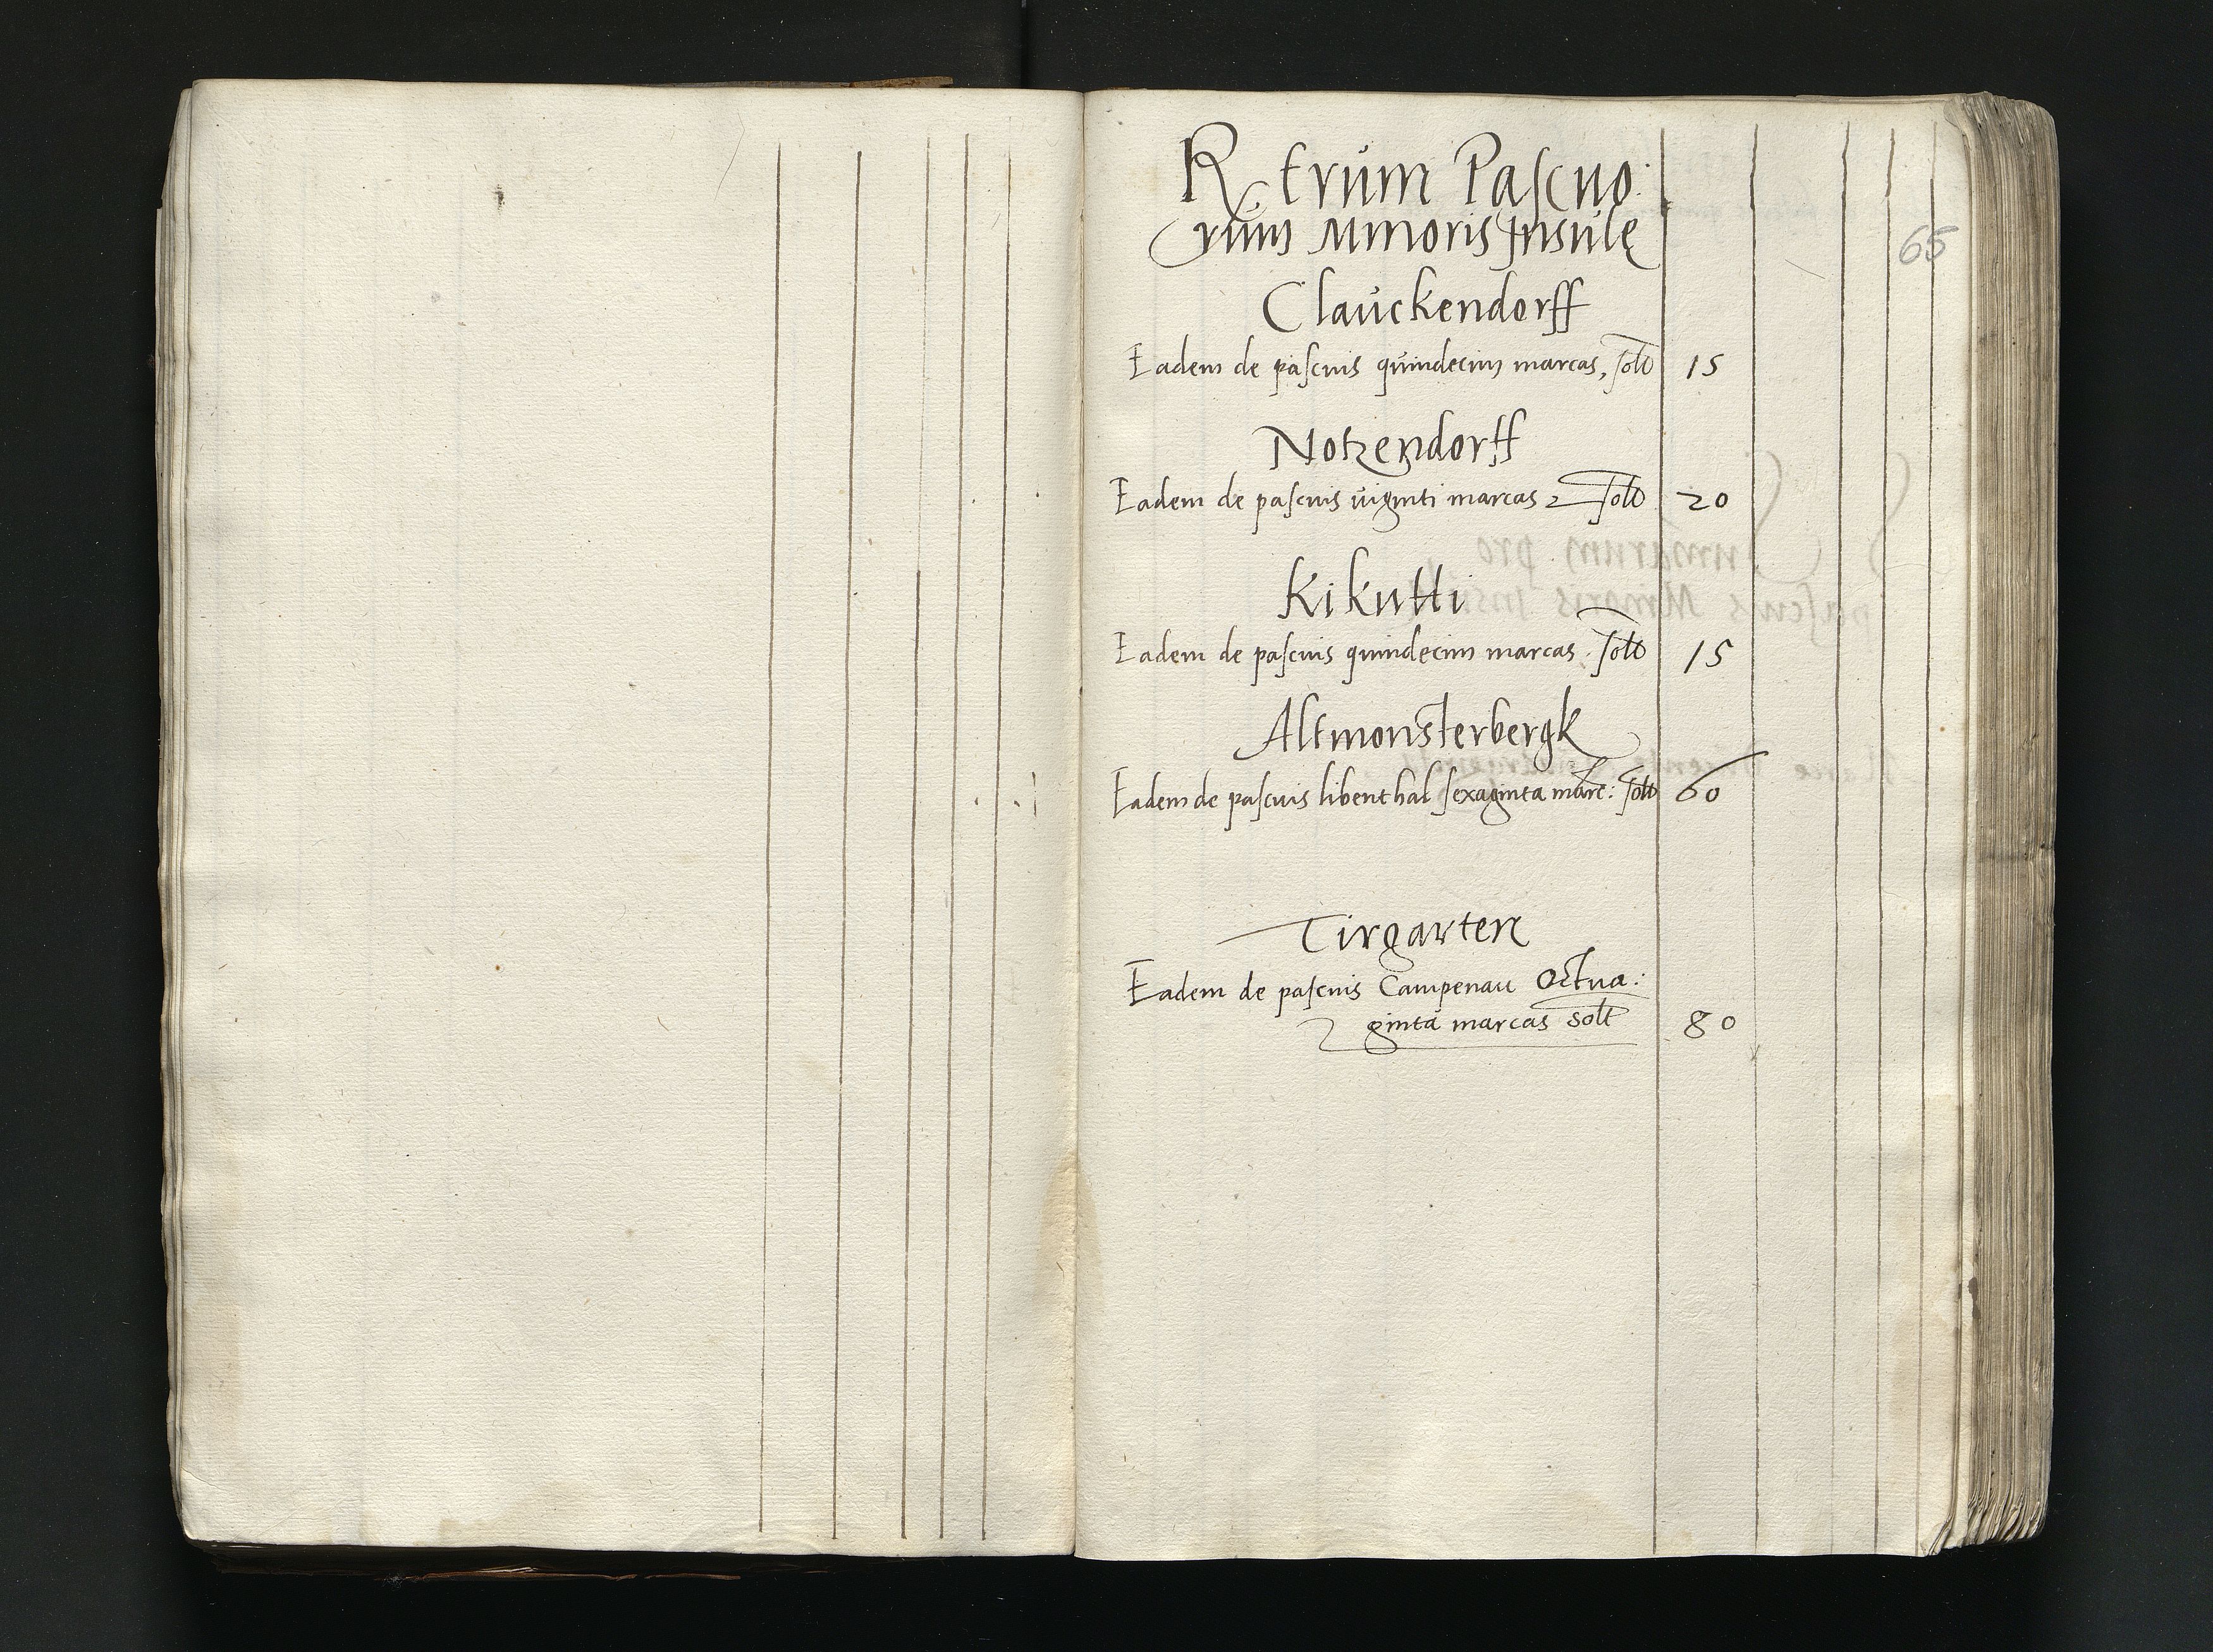 Rtrum Pascuo:
rum Minoris Insulę
65
Clauckendorff
Eadem de pascuis quindecim marcas, solt 15
Notzendorff
Eadem de pascuis uiginti marcas solt 20
Kikutti
Eadem de pascuis quindecim marcas. solt 15
Altmonsterbergk
Eadem de pascuis libenthal sexaginta marc: solt 60
Tirgarten
Eadem de pascuis Campenau Octua:
ginta marcas solt 80